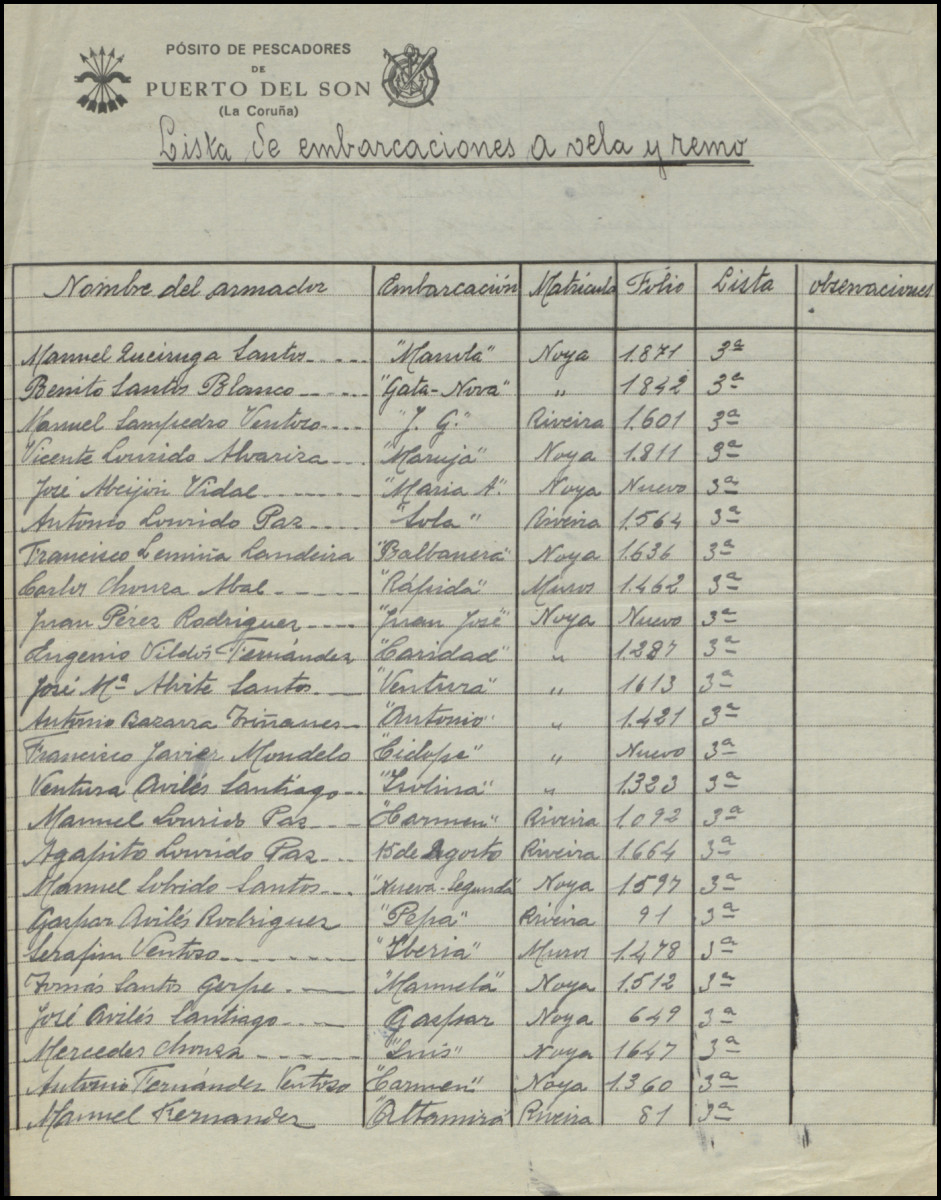 PÓSITO DE PESCADORES
DE
PUERTO DEL SON
(La Coruña)
Lista de embarcaciones a vela y remo
Nombre del armador Embarcación Matrícula Fólio Lista observaciones
Manuel Queiruga Santos "Manola" Noya 1.871 3ª
Benito Santos Blanco "Gata-Nova" " 1842 3ª
Manuel Sampedro Ventoso "J. G." Riveira 1.601 3ª
Vicente Lourido Alvariza "Maruja" Noya 1.811 3ª
José Abeijón Vidal "Maria A". Noya Nuevo 3ª
Antonio Lourido Paz "Lola" Riveira 1.564 3ª
Francisco Lemiña Landeira "Balbanera" Noya 1.636 3ª
Carlos Chouza Abal "Rápida" Muros 1.462 3ª
Juan Pérez Rodriguez "Juan José" Noya Nuevo 3ª
Eugenio Vildós Fernández "Caridad" " 1.287 3ª
José Mª Alvite Santos "Ventura" " 1613 3ª
Antonio Bazarra Triñanes "Antonio" " 1.421 3ª
Francisco Javier Mondelo "Ciclope" " Nuevo 3ª
Ventura Avilés Santiago "Isolina" " 1.323 3ª
Manuel Lourido Paz "Carmen" Riveira 1.092 3ª
Agapito Lourido Paz 15 de Agosto Riveira 1.664 3ª
Manuel Lobrido Santos "Nueva-Segunda" Noya 1597 3ª
Gaspar Avilés Rodriguez "Pepa" Riveira 91 3ª
Serafin Ventoso "Iberia" Muros 1.478 3ª
Tomás Santos Gerpe "Manuela" Noya 1.512 3ª
José Avilés Santiago Gaspar Noya 649 3ª
Mercedes Chouza "Luis" Noya 1647 3ª
Antonio Fernández Ventoso "Carmen" Noya 1.360 3ª
Manuel Hernandez "Altamira" Riveira 81 3ª